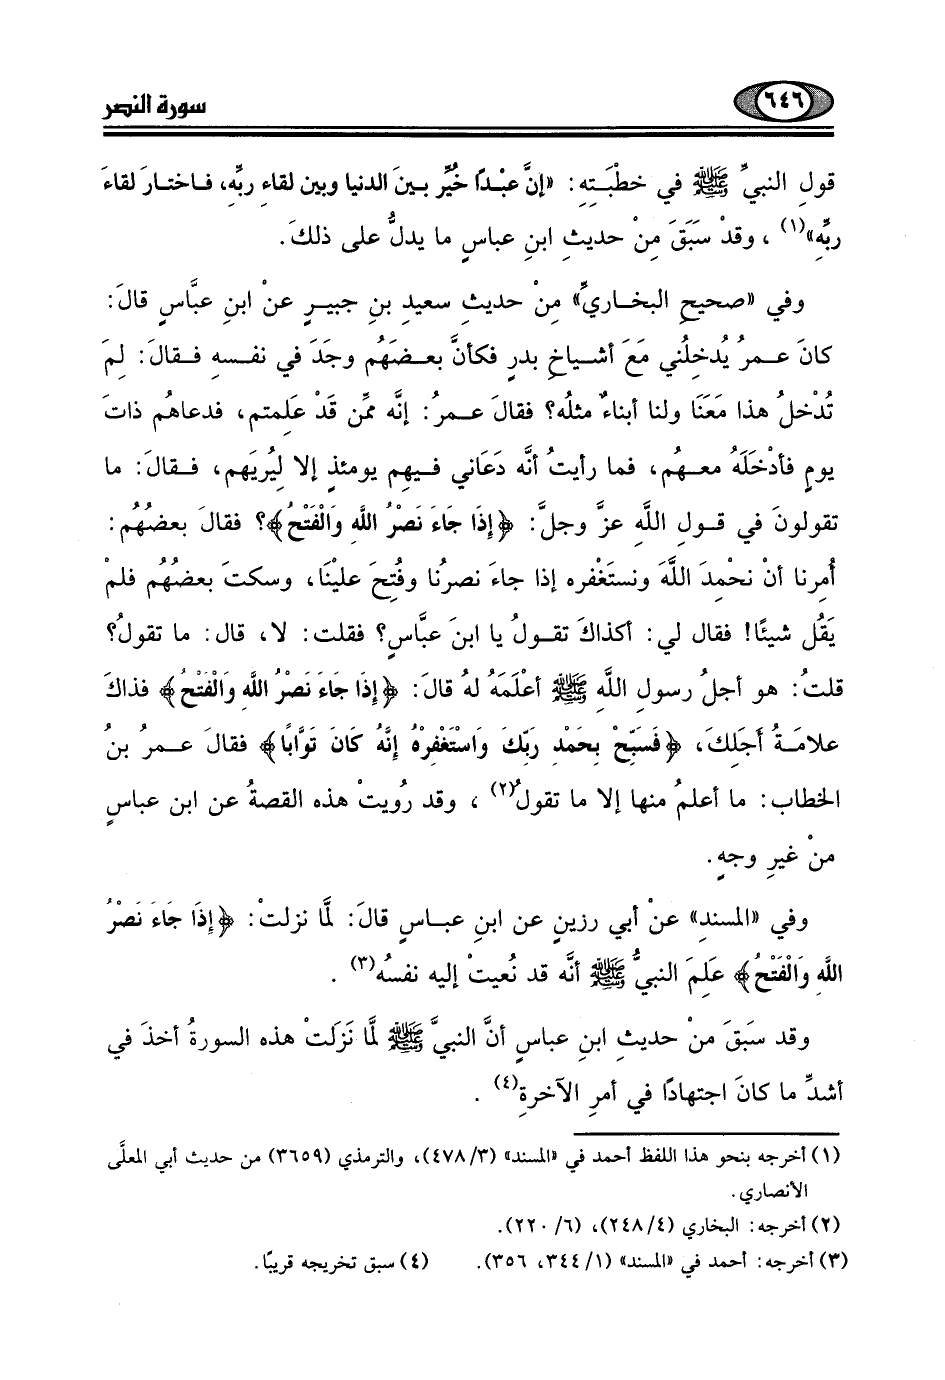 ٦٤٦
سورة النصر
قولِ النبيِّ ﷺ في خطبَتِهِ: «إنَّ عبْدًا خُيِّر بينَ الدنيا وبين لقاءِ ربِّه، فاختارَ لقاءَ
ربِّه»(١)، وقدْ سَبَقَ مِنْ حديثِ ابنِ عباسٍ ما يدلُّ على ذلكَ.
وفي «صحيحِ البخاريِّ» مِنْ حديثِ سعيدِ بنِ جبيرٍ عنْ ابنِ عبَّاسٍ قالَ:
كانَ عمرُ يُدخِلُني مَعَ أشياخِ بدرٍ فكأنَّ بعضَهُم وجَدَ في نفسهِ فقالَ: لِمَ
تُدْخلُ هذا مَعَنَا ولنا أبناءٌ مثلُه؟ فقالَ عمرُ: إنَّه ممَّن قَدْ عَلِمتم، فدعاهُم ذاتَ
يومٍ فأدْخَلَهُ معهُم، فما رأيتُ أنَّه دَعَاني فيهِم يومئذٍ إلا ليُريَهم، فقالَ: ما
تقولونَ في قولِ اللَّهِ عزَّ وجلَّ: ﴿إِذَا جَاءَ نَصْرُ اللَّهِ وَالْفَتْحُ﴾؟ فقالَ بعضُهُم:
أُمِرنا أنْ نحْمِدَ اللَّهَ ونستَغْفره إذا جاءَ نصرُنا وفُتِحَ علينَا، وسكتَ بعضُهُم فلمْ
يَقُل شيئًا! فقال لي: أكذاكَ تقولُ يا ابنَ عبَّاسٍ؟ فقلت: لا، قال: ما تقولُ؟
قلتُ: هو أجلُ رسولِ اللَّهِ ﷺ أعْلَمَهُ لهُ قالَ: ﴿إِذَا جَاءَ نَصْرُ اللَّهِ وَالْفَتْحُ﴾ فذاكَ
علامَةُ أَجَلِكَ، ﴿فَسَبِّحْ بِحَمْدِ رَبِّكَ وَاسْتَغْفِرْهُ إِنَّهُ كَانَ تَوَّابًا﴾ فقالَ عمرُ بنُ
الخطاب: ما أعلمُ منها إلا ما تقولُ(٢)، وقد رُويتْ هذه القصةُ عن ابن عباسٍ
منْ غيرِ وجهٍ.
وفي «المسندِ» عنْ أبي رزينٍ عن ابنِ عباسٍ قالَ: لمَّا نزلتْ: ﴿إِذَا جَاءَ نَصْرُ
اللَّهِ وَالْفَتْحُ﴾ عَلِمَ النبيُّ ﷺ أنَّه قد نُعيتْ إليه نفسُه(٣).
وقد سَبَقَ مِنْ حديثِ ابنِ عباسٍ أنَّ النبيَّ ﷺ لمَّا نَزَلتْ هذه السورةُ أخذَ في
أشدِّ ما كانَ اجتهادًا في أمرِ الآخرةِ(٤).
(١) أخرجه بنحو هذا اللفظ أحمد في «المسند» (٤٧٨/٣)، والترمذي (٣٦٥٩) من حديث أبي المعلَّى
الأنصاري.
(٢) أخرجه: البخاري (٢٤٨/٤)، (٢٢٠/٦).
(٣) أخرجه: أحمد في «المسند» (٣٤٤/١، ٣٥٦). (٤) سبق تخريجه قريبًا.